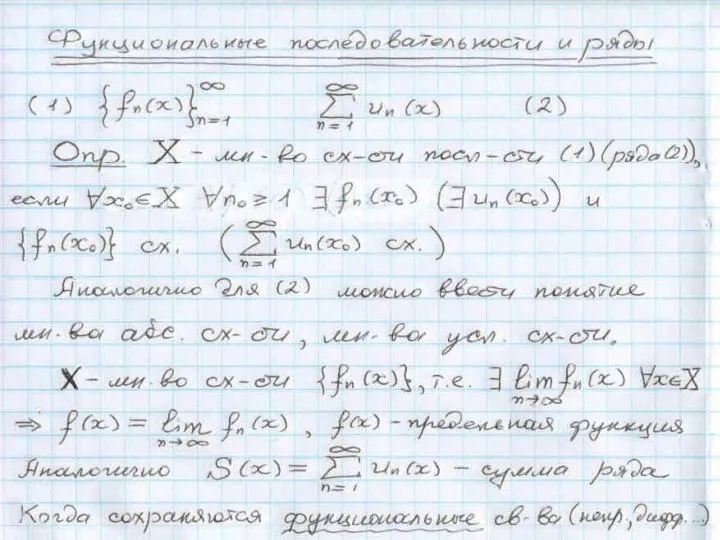 Функциональные последовательности и ряды
(1) {fₙ(x)}ₙ₌₁^∞ ∑ₙ₌₁^∞ uₙ(x) (2)
Опр. X – мн-во сх-сти посл-сти (1) (ряда (2)),
если ∀x₀∈X ∀n₀≥1 ∃fₙ(x₀) (∃uₙ(x₀)) и
{fₙ(x₀)} сх. (∑ₙ₌₁^∞ uₙ(x₀) сх.)
Аналогично для (2) можно ввести понятие
мн-ва абс. сх-сти, мн-ва усл. сх-сти.
X – мн-во сх-сти {fₙ(x)}, т.е. ∃ lim_{n→∞} fₙ(x) ∀x∈X
⇒ f(x) = lim_{n→∞} fₙ(x), f(x) – предельная функция
Аналогично S(x) = ∑ₙ₌₁^∞ uₙ(x) – сумма ряда
Когда сохраняются функциональные св-ва (непр., дифф...)